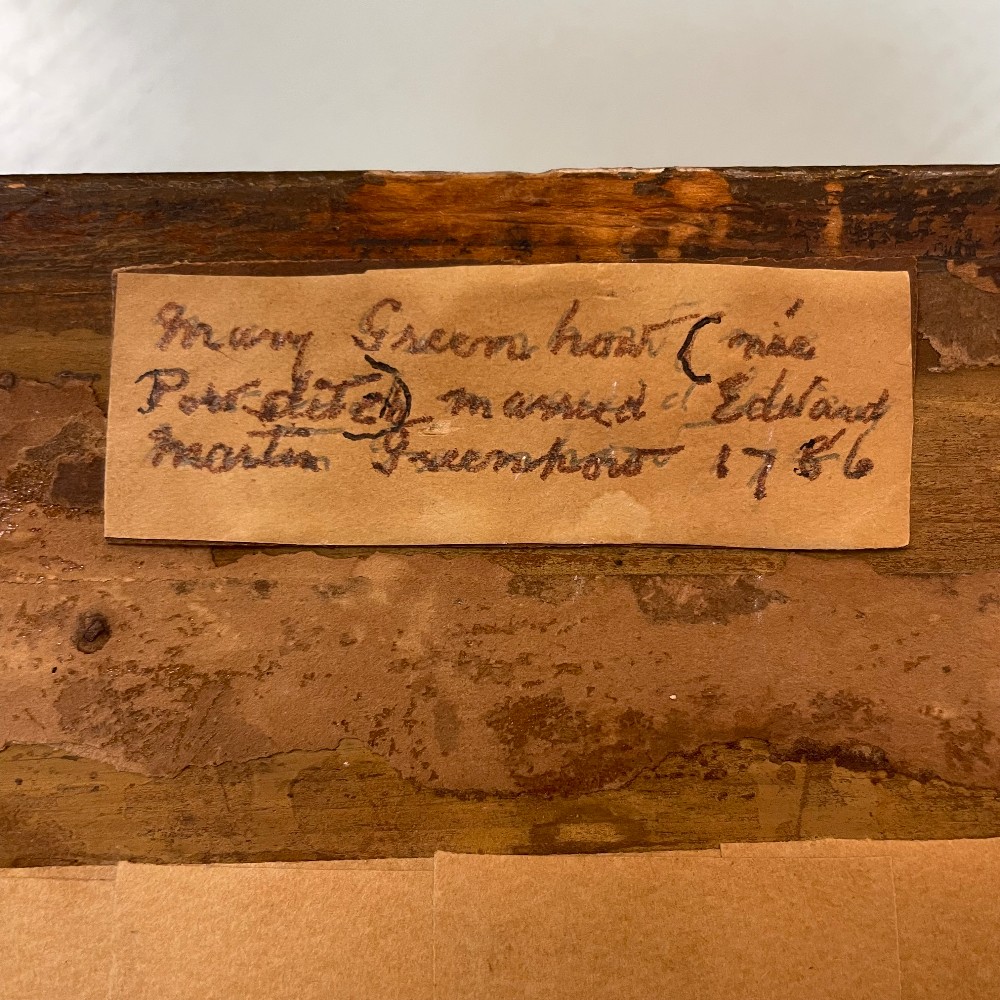 Mary Greenhow (née
Powditch) married Edward
Martin Greenhow 1786